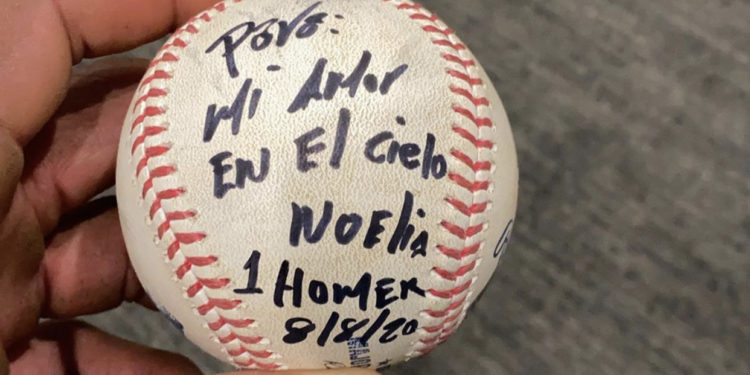 Para:
Mi Amor
EN El cielo
NOElia
1 HOMER
8/8/20